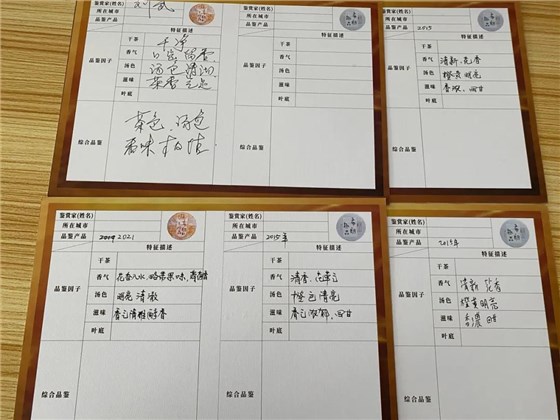 鉴赏家(姓名)
所在城市
品鉴产品
特征描述
品鉴因子
干茶
干净
香气
汤色
滋味
叶底
综合品鉴
茶色、汤色
香味
所在城市
品鉴产品
特征描述
品鉴因子
干茶
香气
汤色
滋味
叶底
综合品鉴
品鉴产品 2015
特征描述
品鉴因子
干茶
香气 清新、花香
汤色 橙黄明亮
滋味 香浓、回甘
叶底
综合品鉴
鉴赏家(姓名)
所在城市
品鉴产品 2021
特征描述
品鉴因子
干茶
香气 花香入水、略带果味、
汤色 明亮清澈
滋味 香气清雅醇香
叶底
综合品鉴
鉴赏家(姓名)
所在城市
品鉴产品 2015年
特征描述
品鉴因子
干茶
香气 清香、花香
汤色 橙色清亮
滋味 香气浓郁、回甘
叶底
综合品鉴
鉴赏家(姓名)
所在城市
品鉴产品 2015年
特征描述
品鉴因子
干茶
香气 清新 花香
汤色 橙黄明亮
滋味 香浓 回甘
叶底
综合品鉴